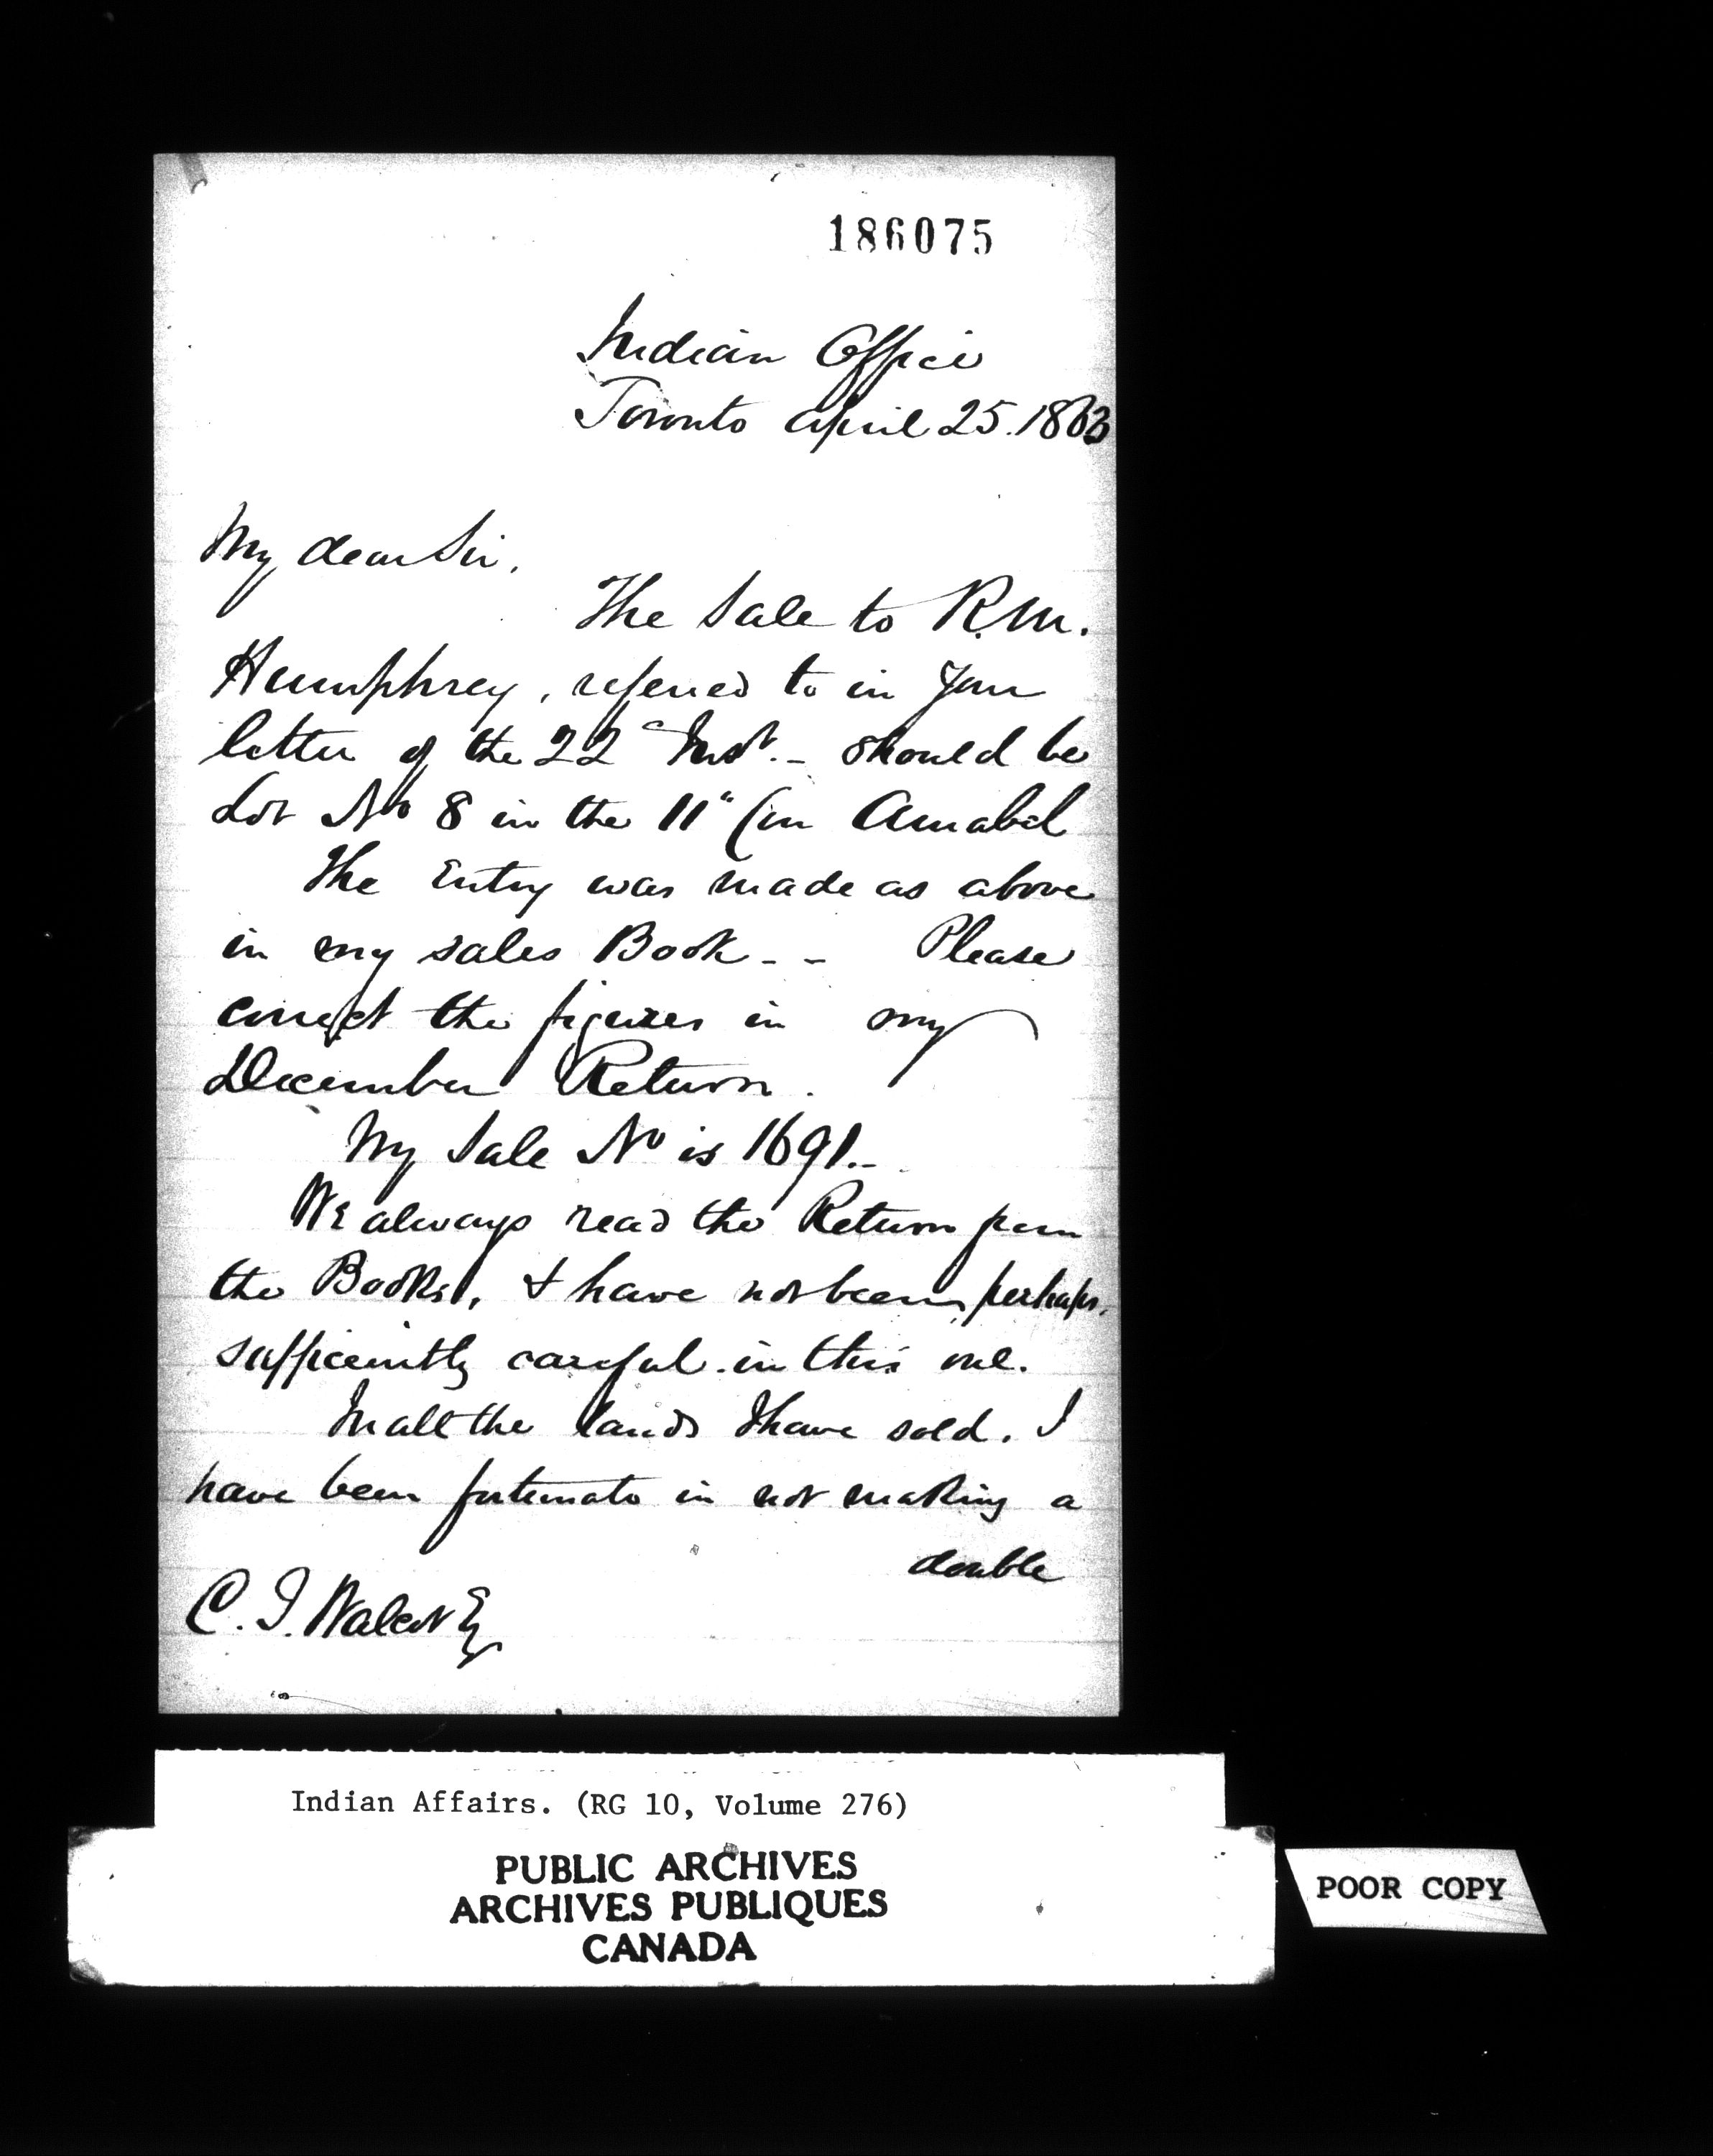 186075
Indian Office
Toronto April 25. 1863
My dear Sir,
The Sale to R.M.
Humphrey, referred to in your
letter of the 22d Inst. - should be
Lot No 8 in the 11" Con Amabel
The Entry was made as above
in my sales Book - - Please
correct the figures in my
December Return.
My Sale No is 1691. -
We always read the Return from
the Books, & have not been, perhaps,
sufficiently careful in this one.
In all the lands I have sold, I
have been fortunate in not making a
double
C. T. Walcot Esq
Indian Affairs. (RG 10, Volume 276)
PUBLIC ARCHIVES
ARCHIVES PUBLIQUES
CANADA
POOR COPY